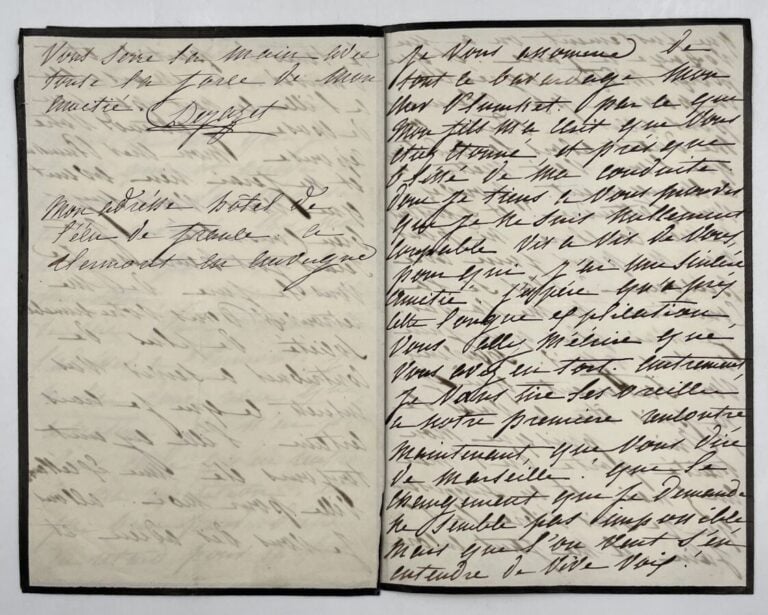 Vous serre la main avec
toute la force de mon
amitié. Dejazet
mon adresse hôtel de
l'écu de france. a
Clermont en auvergne
Je vous assomme de
tout ce bavardage mon
cher Plunket. par ce que
mon fils m'a dit que vous
etiez étonné et presque
blessé de ma conduite.
Donc je tiens a vous prouver
que je ne suis nullement
coupable vis a vis de vous,
pour qui j'ai une sincère
amitié j'espère qu'apres
cette longue explication
vous allez m'écrire que
vous avez eu tort. autrement
je vous tire les oreilles
a notre première rencontre
maintenant, que vous dire
de marseille. que le
changement que je demande
ne semble pas impossible
mais que l'on veut s'en
entendre de vive voix.